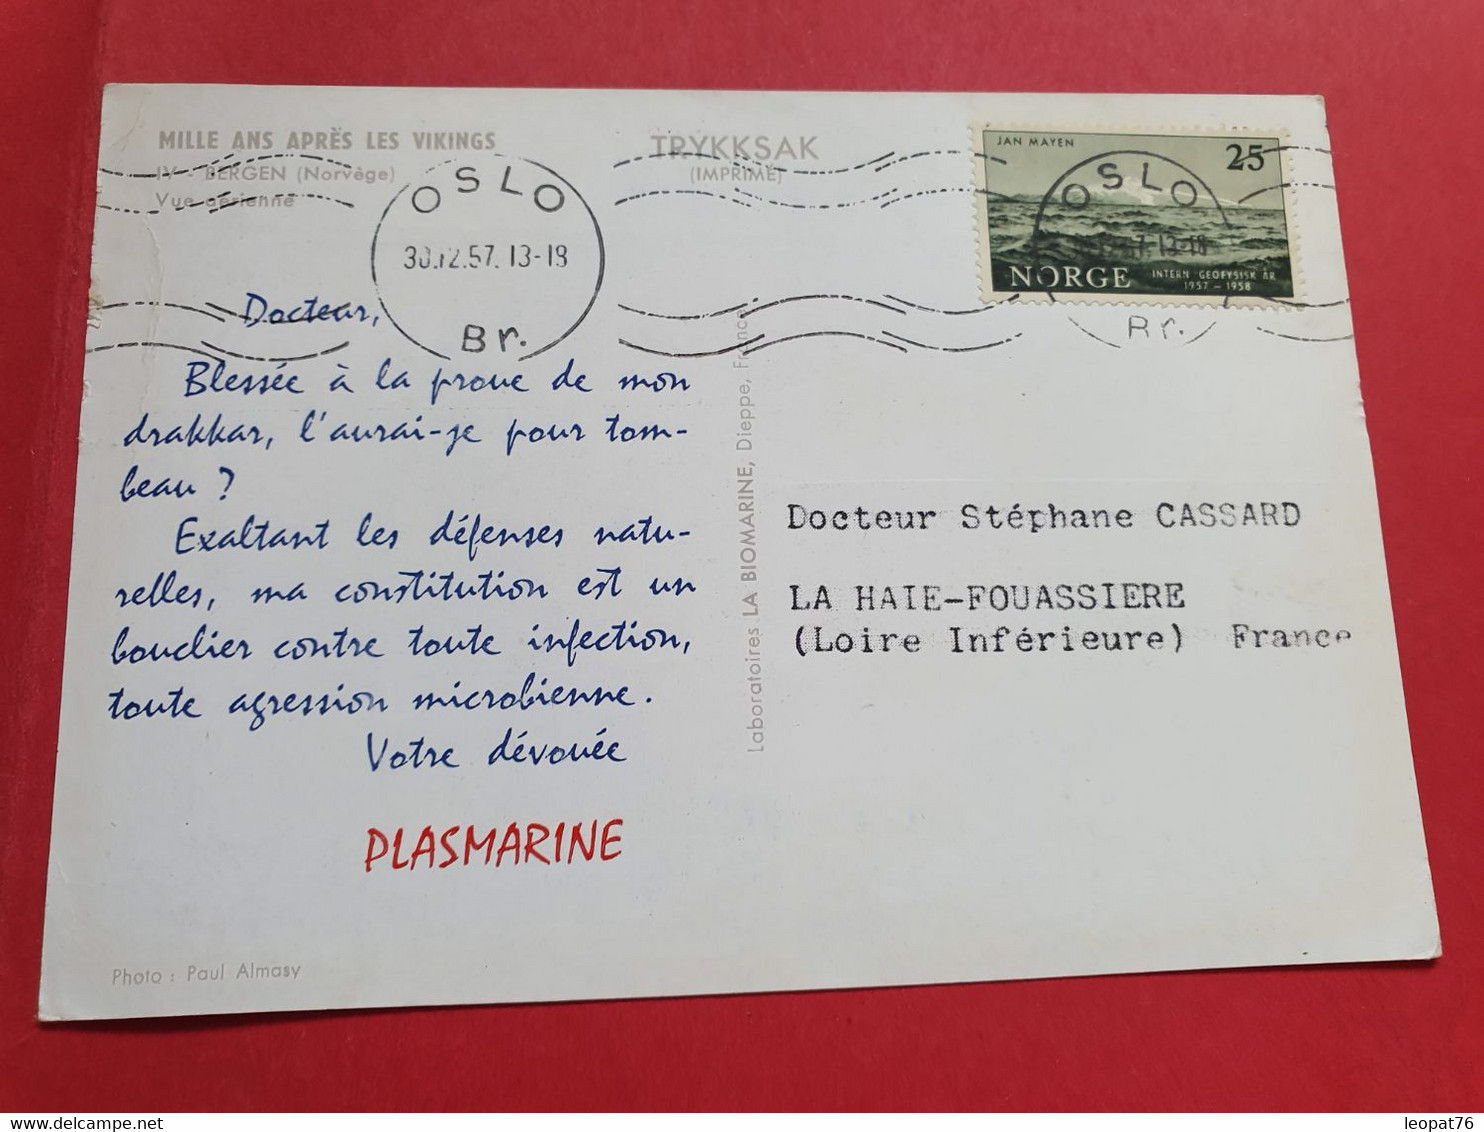 MILLE ANS APRÈS LES VIKINGS
IV - BERGEN (Norvège)
Vue aérienne
TRYKKSAK
(IMPRIMÉ)
OSLO
30.12.57. 13-18
Br.
JAN MAYEN
25
NORGE
INTERN GEOFYSISK ÅR
1957 - 1958
OSLO
57. 13-18
Br.
Docteur,
Blessée à la proue de mon
drakkar, l'aurai-je pour tom-
beau ?
Exaltant les défenses natu-
relles, ma constitution est un
bouclier contre toute infection,
toute agression microbienne.
Votre dévouée
PLASMARINE
Photo : Paul Almasy
Laboratoires LA BIOMARINE, Dieppe, France
Docteur Stéphane CASSARD
LA HAIE-FOUASSIERE
(Loire Inférieure) France
leopat76